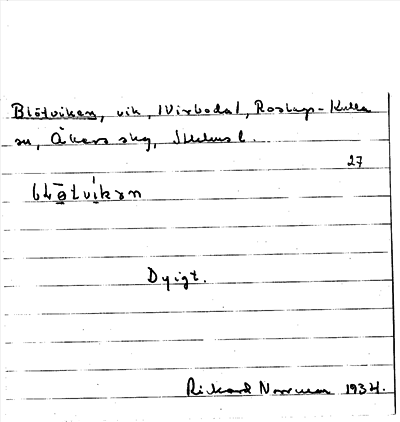 Blötviken, vik, Virbodal, Roslags-Kulla
sn, Åkers skg, Sthlms l.
27
Dyigt.
Rickard Norrman 1934.